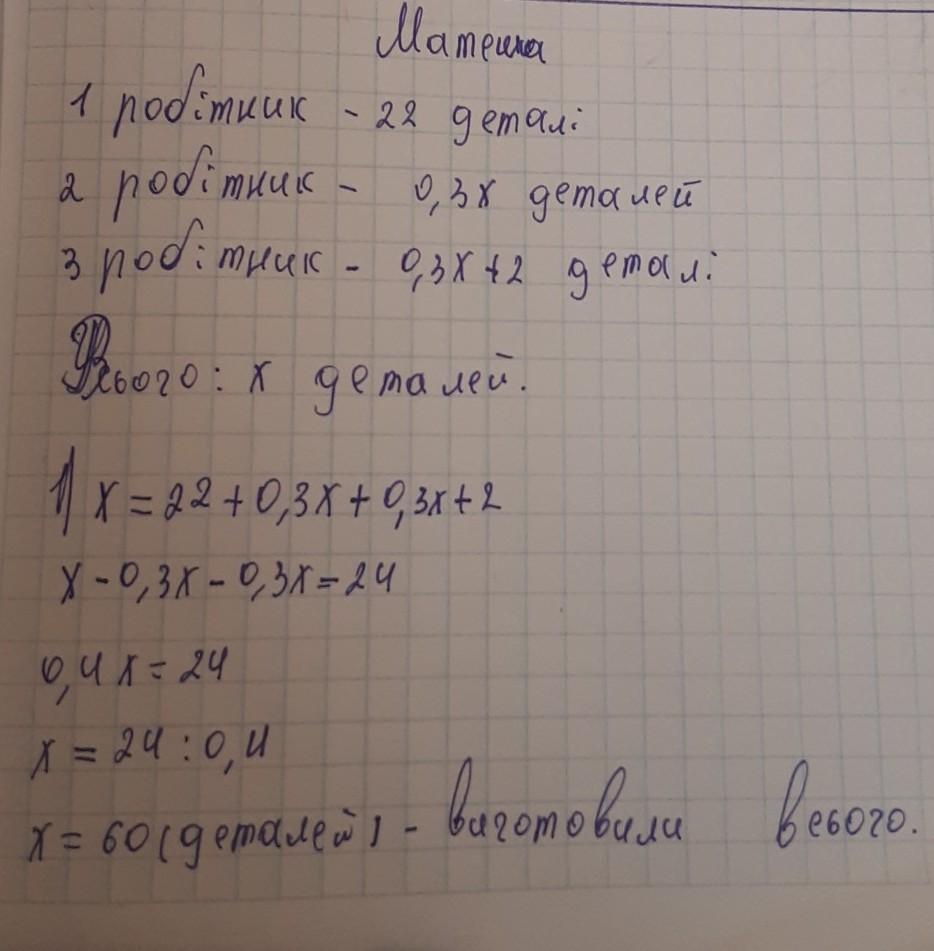 Матеша
1 робітник - 22 деталі
2 робітник - 0,3х деталей
3 робітник - 0,3х+2 деталі
Всього: х деталей.
1) х=22+0,3х+0,3х+2
х-0,3х-0,3х=24
0,4х=24
х=24:0,4
х=60(деталей) - виготовили всього.